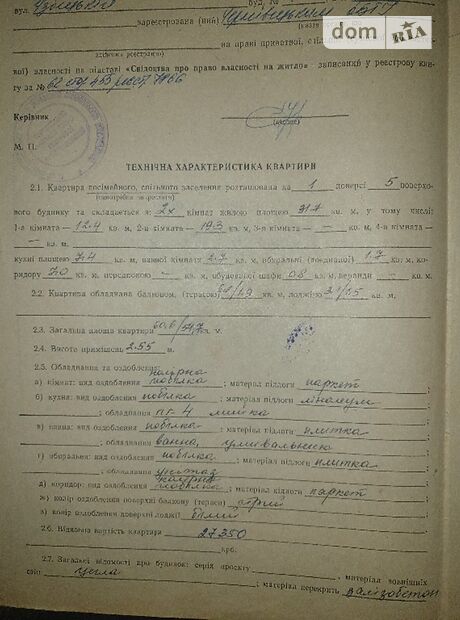 вул. Узбецька
зареєстрована (ний) Чернівецьким
dom RIA
(назва
на праві приватної,
вої) власності на підставі «Свідоцтва про право власності на житло» записаній у реєстрову кни-
гу за № 62 стор 453 реєст. 7466
Керівник
(підпис)
М. П.
ТЕХНІЧНА ХАРАКТЕРИСТИКА КВАРТИРИ
2.1. Квартира посімейного, спільного заселення розташована на 1 поверсі 5 поверхо-
(непотрібне закреслити)
вого будинку та складається з: 2х кімнат жилою площею 31.7 кв. м, у тому числі:
1-а кімната — 12.4 кв. м, 2-а кімната — 19.3 кв. м, 3-я кімната — — кв. м, 4-а кімната —
— кв. м.
кухні площею 7.4 кв. м, ванної кімнати 2.7 кв. м, вбиральні (поєднаної) 1.7 кв. м, ко-
ридору 7.0 кв. м, передпокою — кв. м, вбудованої шафи 0.8 кв. м, веранди — кв. м.
2.2. Квартира обладнана балконом, (терасою) кв. м, лоджією кв. м.
2.3. Загальна площа квартири 60.6/54.7 кв. м.
2.4. Висота приміщень 2.55 м.
2.5. Обладнання та оздоблення:
кольорна
а) кімнат: вид оздоблення побілка; матеріал підлоги паркет;
б) кухня: вид оздоблення побілка; матеріал підлоги лінолеум
; обладнання пг-4 мийка;
в) ванна: вид оздоблення побілка; матеріал підлоги плитка
; обладнання ванна, умивальник;
г) вбиральня: вид оздоблення побілка; матеріал підлоги плитка
; обладнання унітаз;
кольорна
д) коридор: вид оздоблення побілка; матеріал підлоги паркет
ж) колір оздоблення поверхні балкону (тераси) сірий;
з) колір оздоблення поверхні лоджії білий
2.6. Відновна вартість квартири 27350
крб.
2.7. Загальні відомості про будинок: серія проекту , матеріал зовнішніх
стін цегла ; матеріал перекрить залізобетон